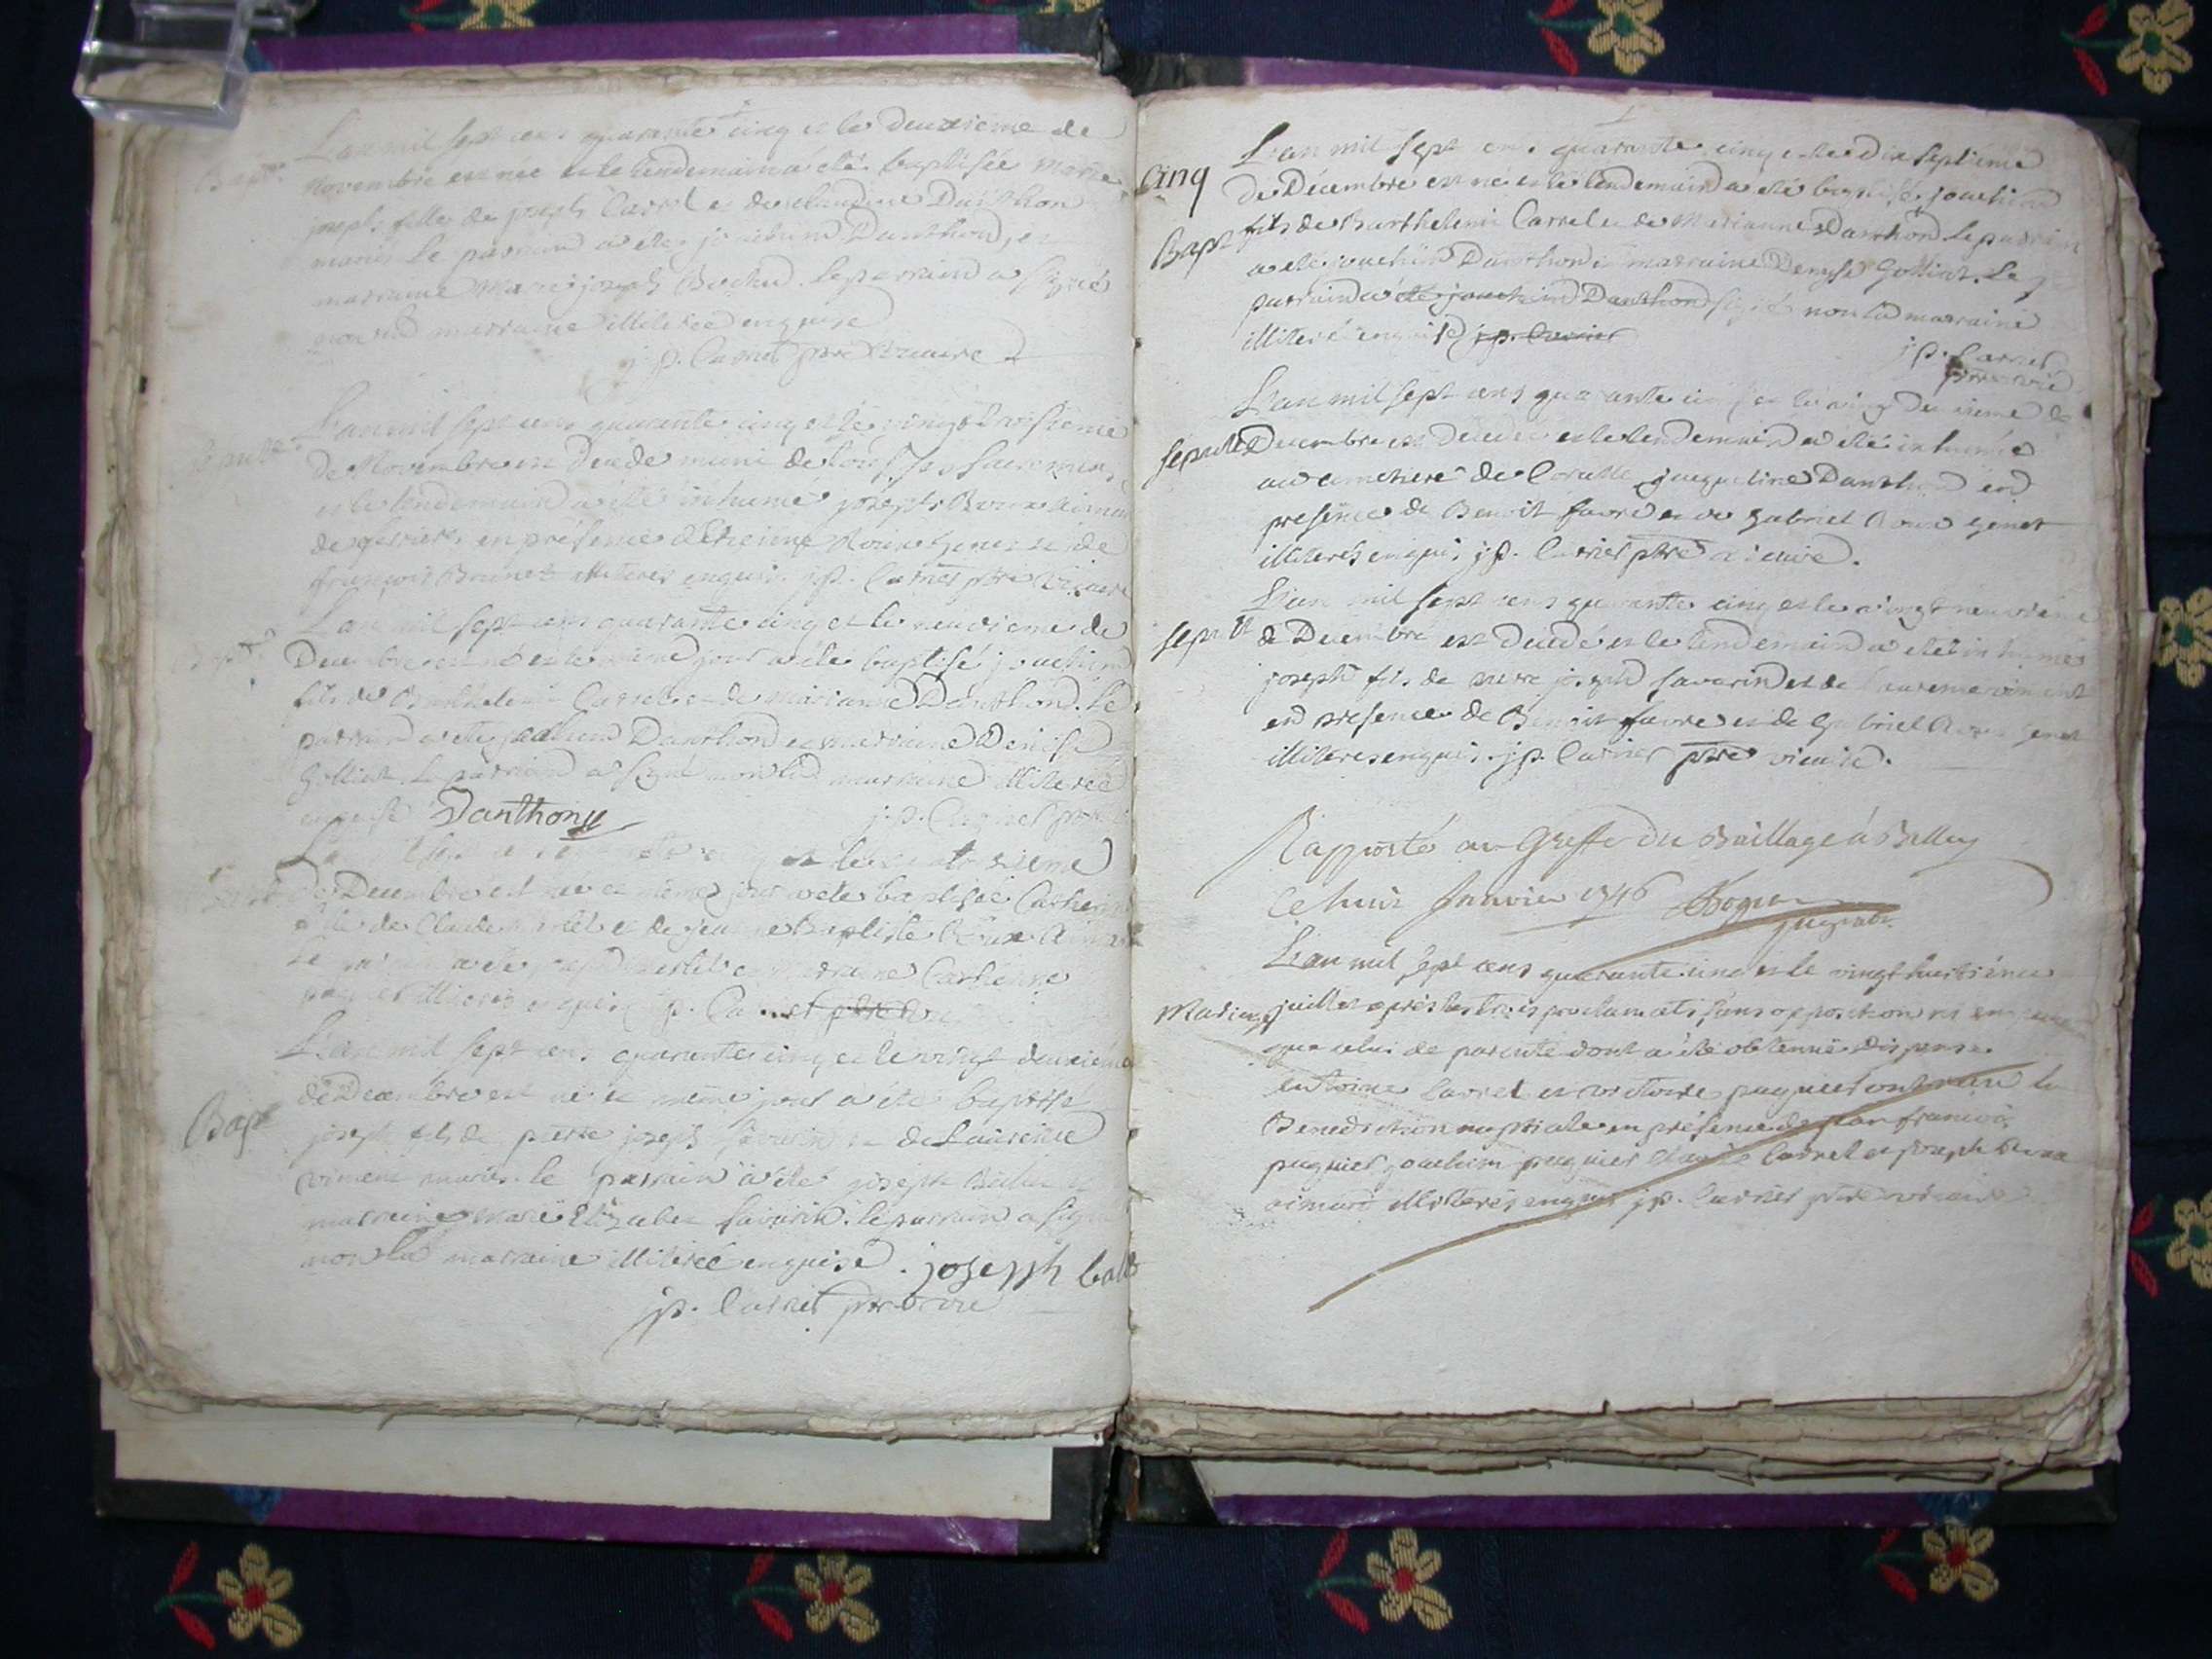 Bap
L'an mil sept cens quarante cinq et le deuxième de
Novembre est née et le lendemain a été baptisée Marie
joseph fille de joseph Carrel et de claudine Danthon
mariés le parrain a été joachim Danthon, et
marraine Marie joseph Bochu. le parrain a signé
non la marraine illiterée enquise
j.p. Carrier ptre vicaire
sepulte
L'an mil sept cens quarante cinq et le vingt troisième
de Novembre est decedé muni de tous ses sacremens
et le lendemain a été inhumé joseph Roux aimar
en présence d'Etienne Roux Genet et de
françois Brunet illiterés enquis. j.p. Carrier ptre vicaire
Bapt
L'an mil sept cens quarante cinq et le neuvieme de
Decembre est né et le même jour a été baptisé joachim
fils de Barthelemi Carrel et de marianne Danthon. Le
parrain a été joachim Danthon et marraine Denise
Golliat. le parrain a signé non la marraine illiterée
enquise Danthony j.p. Carrier ptre
L'an et le quatorsieme
de Decembre est née et même jour a été baptisée Catherine
fille de Claude et de jeanne Baptiste Roux Aimar
Le parrain a été et marraine Catherine
paquier illiterés enquis j.p. Carrier ptre vic
L'an mil sept cens quarante cinq et le vingt deuxième
Bap
de Decembre est né et même jour a été baptisé
joseph fils de pierre joseph savarin et de Laurence
vincent mariés. le parrain a été joseph
marraine marie Elizabet savarin. le parrain a signé
non la marraine illiterée enquise. joseph ball
j.p. Carrier ptre vic
cinq
L'an mil sept cens quarante cinq et le dix septième
de Décembre est né et le lendemain a été baptisé joachim
Bapt
fils de Barthelemi Carrel et de Marianne Danthon. Le parrain
a été joachim Danthon et marraine Denyse Golliat. Le
parrain a été joachim Danthon signé non la marraine
illiterée enquise j.p. Carrier
j.p. Carrier
ptre vic
L'an mil sept cens quarante cinq et le vingt deuxieme de
sepulte
Decembre est decedée et le lendemain a été inhumée
au cimetiere de jaqueline Danthon en
presence de Benoit favre et de gabriel Roux genet
illiterés enquis j.p. Carrier ptre vicaire.
L'an mil sept cens quarante cinq et le vingt neuvième
sepult
de Decembre est decedé et le lendemain a été inhumé
joseph fils de pierre joseph savarin et de Laurence vincent
en presence de Benoit favre et de Gabriel Roux genet
illiterés enquis. j.p. Carrier ptre vicaire.
Rapporté au Greffe du Baillage à Belley
Ce huit Janvier 1746
L'an mil sept cens quarante cinq et le vingt huitième
Mariage
juillet après les trois proclamats sans opposition ni empechement
que celui de parenté dont a été obtenue dispense
entoine Carrel et victoire paquier ont reçu la
Benediction nuptiale en présence de jean françois
paquier, joachim paquier Claude Carrel et joseph Roux
aimard illiterés enquis j.p. Carrier ptre vicaire